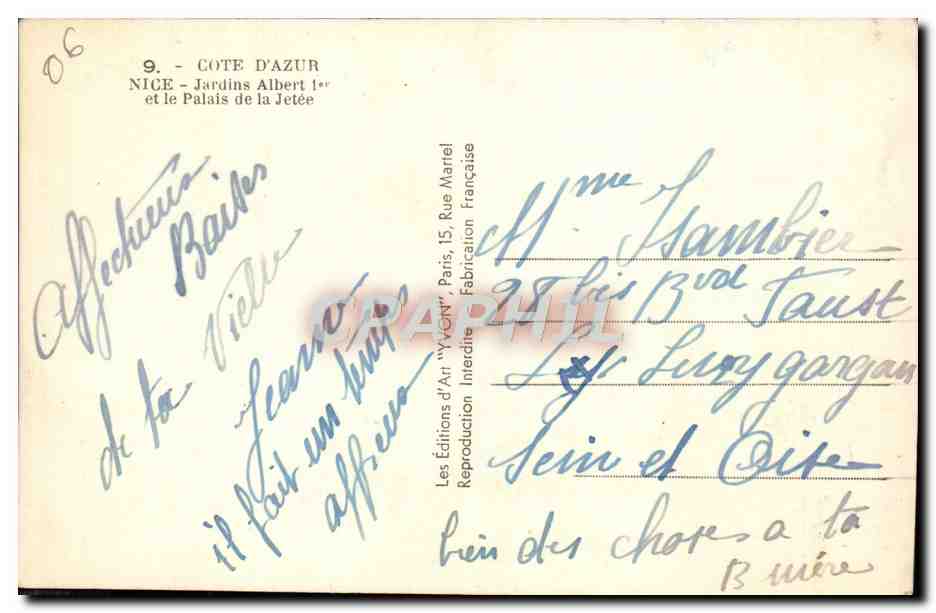 06
9. - COTE D'AZUR
NICE - Jardins Albert 1er
et le Palais de la Jetée
Affectueux
Baises
de ta Vielle
Jeanne
il fait un temps
affreux
Les Éditions d'Art "YVON", Paris, 15, Rue Martel
Reproduction Interdite Fabrication Française
CPAPHIL
Mme Hambier
28 bis Bvd Faust
Livry gargan
Sein et Oise
bien des choses a ta
B mére